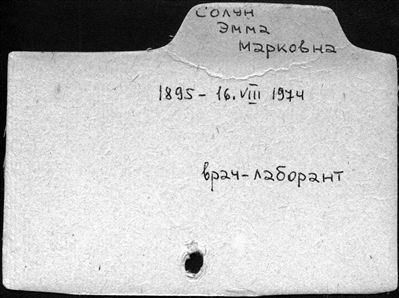 Солун
Эмма
Марковна
1895 - 16.VIII 1974
врач-лаборант